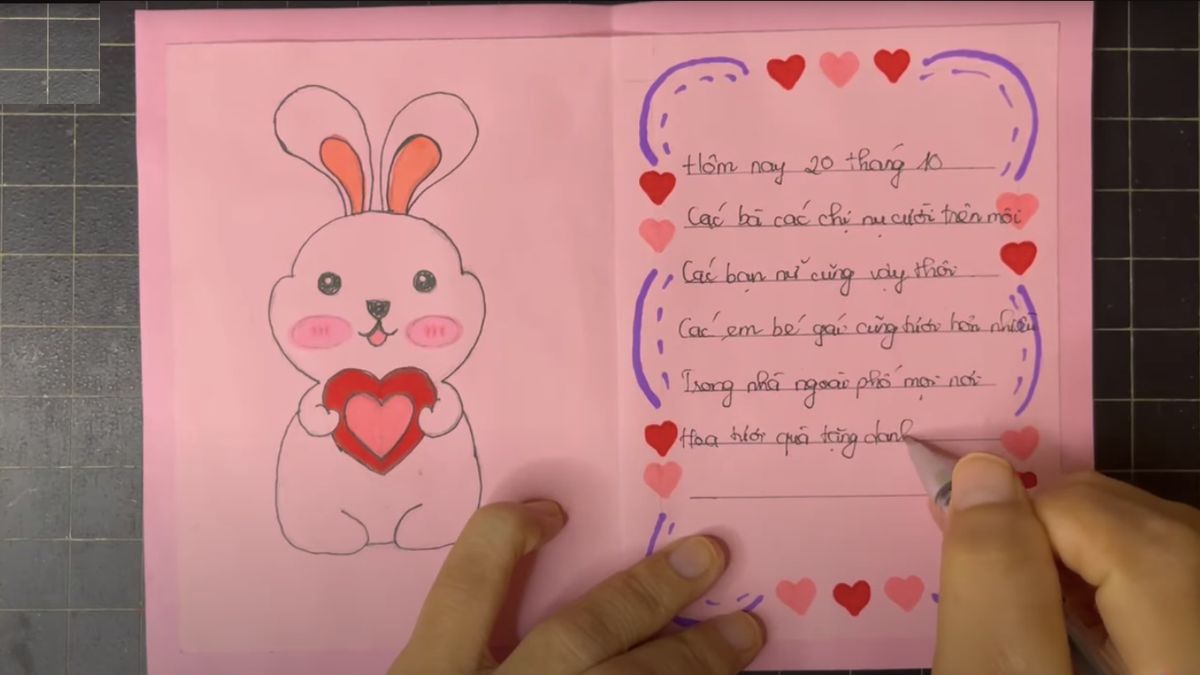 Hôm nay 20 tháng 10
Các bà các chị nụ cười trên môi
Các bạn nữ cũng vậy thôi
Các em bé gái cũng tươi hơn nhiều
Trong nhà ngoài phố mọi nơi
Hoa tươi quà tặng danh